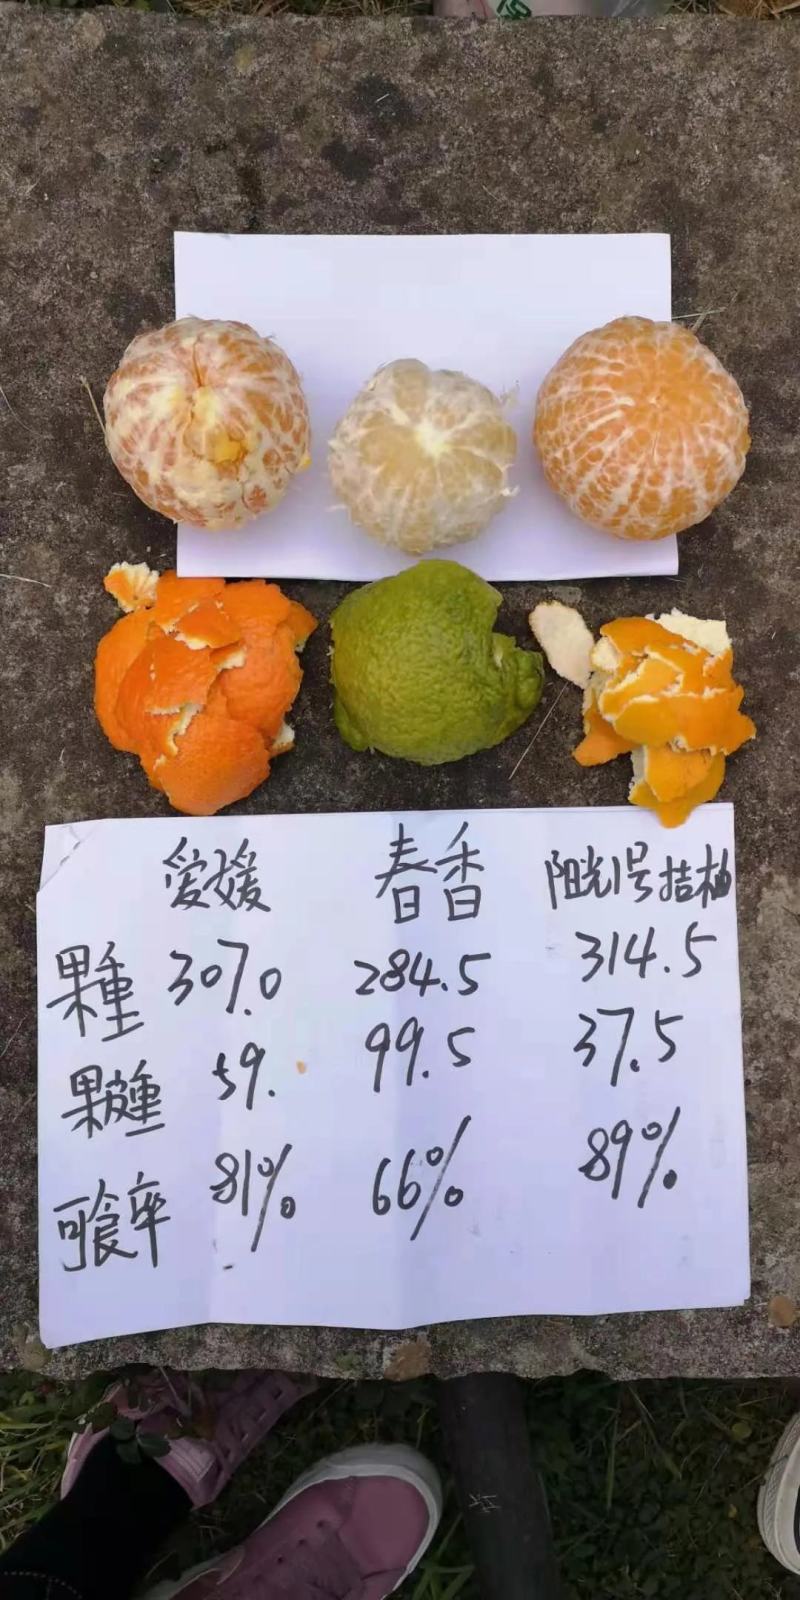 爱媛 春香 阳光1号桔柚
果重 307.0 284.5 314.5
果皮重 59. 99.5 37.5
可食率 81% 66% 89%